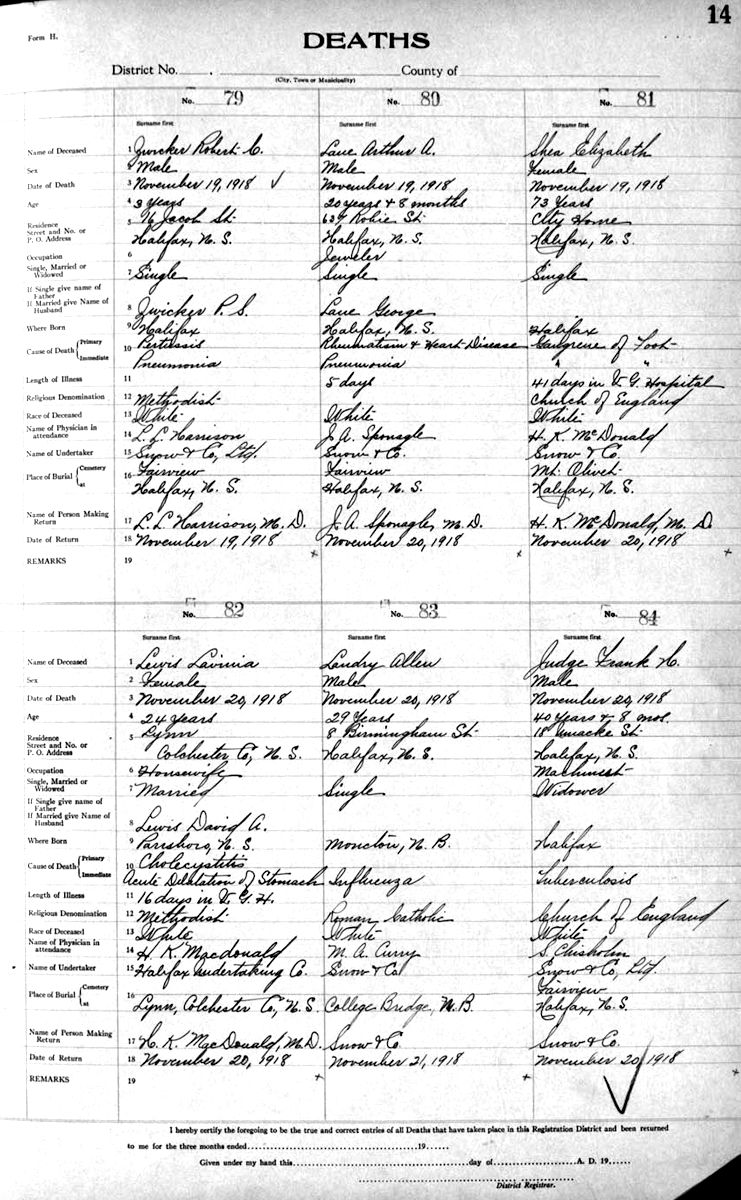 14
Form H.
DEATHS
District No. . County of
(City, Town or Municipality)
No. 79 No. 80 No. 81
Surname first Surname first
Name of Deceased 1 Zwicker Robert C. Lane Arthur A. Shea Elizabeth
Sex 2 Male Male Female
Date of Death 3 November 19, 1918 ✓ November 19, 1918 November 19, 1918
Age 4 3 years 20 years & 8 months 73 Years
Residence 5 16 Jacob St. 637 Robie St. City Home
Street and No. or
P. O. Address Halifax, N. S. Halifax, N. S. Halifax, N. S.
Occupation 6 Jeweler
Single, Married or
Widowed 7 Single Single Single
If Single give name of
Father
If Married give Name of
Husband 8 Zwicker P. S. Lane George
Where Born 9 Halifax Halifax, N. S. Halifax
Cause of Death Primary 10 Pertussis Rheumatism & Heart Disease Gangrene of Foot
Immediate Pneumonia Pneumonia " "
Length of Illness 11 5 days 41 days in V. G. Hospital
Religious Denomination 12 Methodist Church of England
Race of Deceased 13 White White White
Name of Physician in
attendance 14 L. L. Harrison J. A. Sponagle H. K. McDonald
Name of Undertaker 15 Snow & Co, Ltd. Snow & Co. Snow & Co.
Place of Burial Cemetery 16 Fairview Fairview Mt. Olivet
at Halifax, N. S. Halifax, N. S. Halifax, N. S.
Name of Person Making
Return 17 L. L. Harrison, M. D. J. A. Sponagle, M. D. H. K. McDonald, M. D.
Date of Return 18 November 19, 1918 November 20, 1918 November 20, 1918
REMARKS 19
No. 82 No. 83 No. 84
Surname first Surname first Surname first
Name of Deceased 1 Lewis Lavinia Landry Allen Judge Frank H.
Sex 2 Female Male Male
Date of Death 3 November 20, 1918 November 20, 1918 November 20, 1918
Age 4 24 years 29 Years 40 Years & 8 mos.
Residence 5 Lynn 8 Birmingham St. 18 Uniacke St.
Street and No. or
P. O. Address Colchester Co, N. S. Halifax, N. S. Halifax, N. S.
Occupation 6 Housewife Machinist
Single, Married or
Widowed 7 Married Single Widower
If Single give name of
Father
If Married give Name of
Husband 8 Lewis David A.
Where Born 9 Parrsboro, N. S. Moncton, N. B. Halifax
Cause of Death Primary 10 Cholecystitis
Immediate Acute Dilatation of Stomach Influenza Tuberculosis
Length of Illness 11 16 days in V. G. H.
Religious Denomination 12 Methodist Roman Catholic Church of England
Race of Deceased 13 White White White
Name of Physician in
attendance 14 H. K. Macdonald M. A. Curry S. Chisholm
Name of Undertaker 15 Halifax Undertaking Co. Snow & Co Snow & Co, Ltd.
Place of Burial Cemetery 16 Fairview
at Lynn, Colchester Co, N. S. College Bridge, N. B. Halifax, N. S.
Name of Person Making
Return 17 H. K. MacDonald, M. D. Snow & Co. Snow & Co.
Date of Return 18 November 20, 1918 November 21, 1918 November 20, 1918
REMARKS 19
I hereby certify the foregoing to be the true and correct entries of all Deaths that have taken place in this Registration District and been returned
to me for the three months ended 19
Given under my hand this day of A. D. 19
District Registrar.